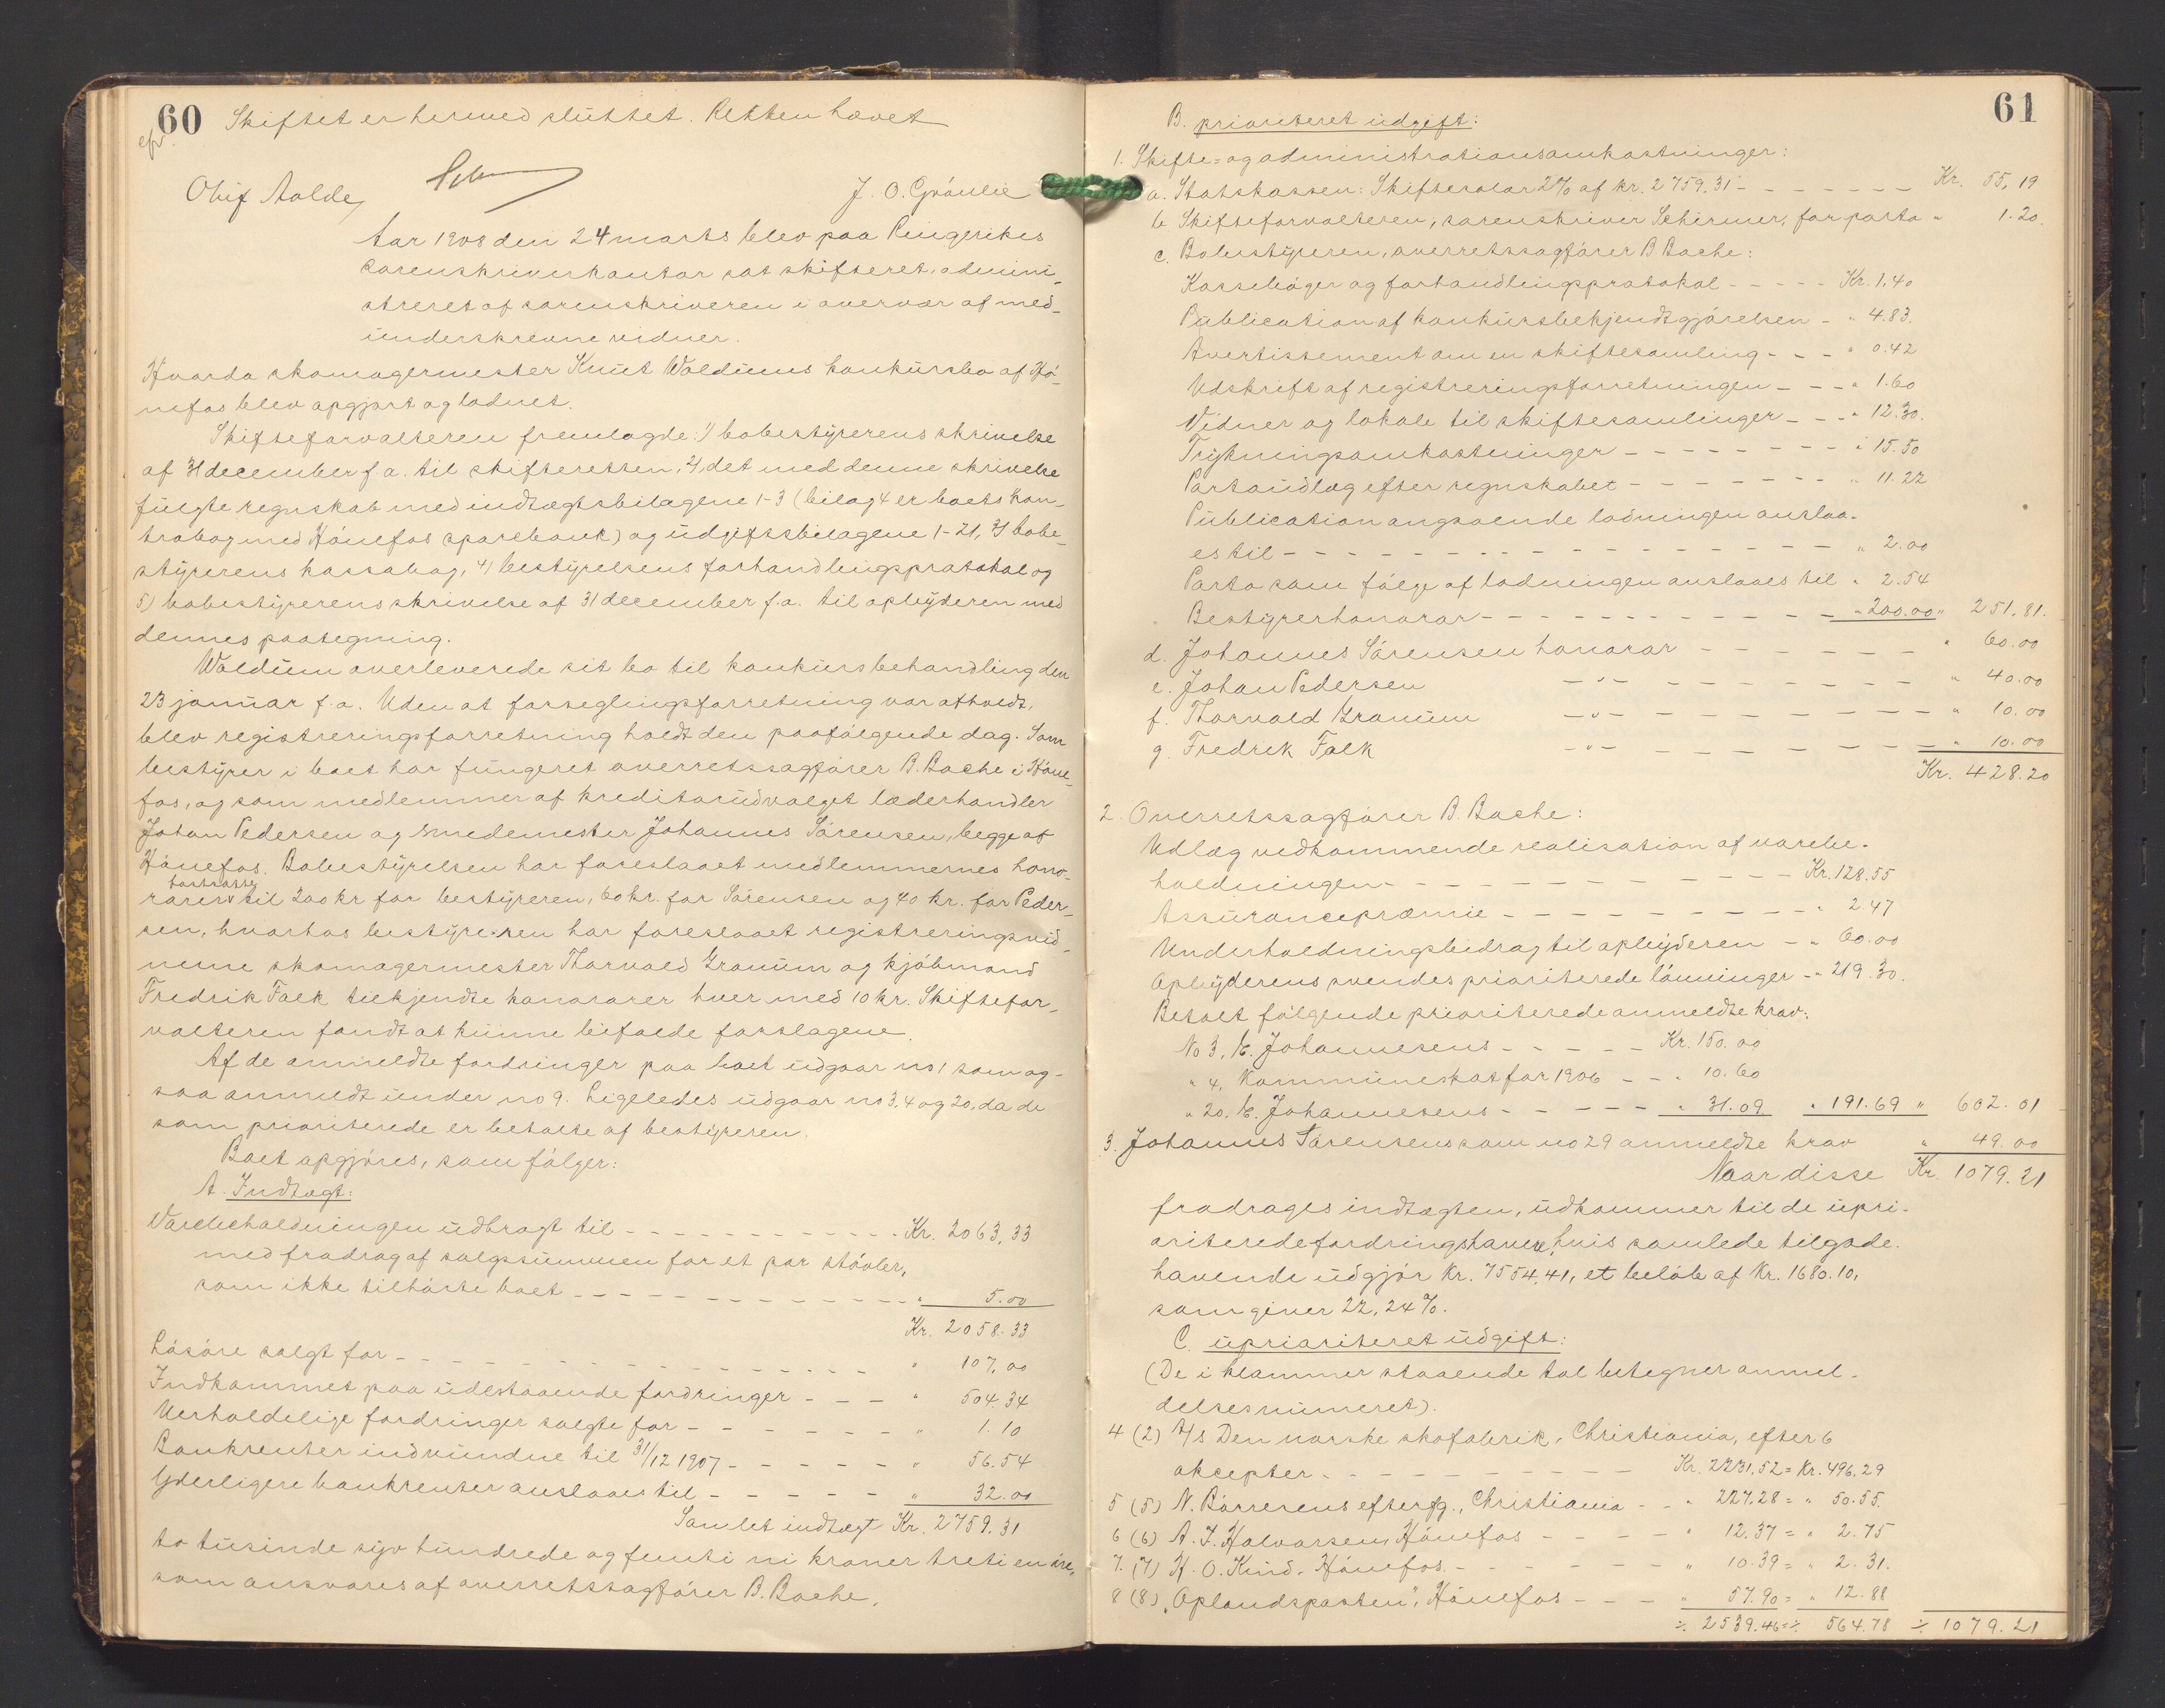 60 Skiftet er hermed sluttet. Retten hævet
Oluf Aalde, J. O. Graulie
Aar 1908 den 24 marts blev paa Ringerikes
sorenskriverkontor sat skifteret, admini-
streret af sorenskriveren i overvær af med-
underskrevne vidner.
Hvorda skomagermester Knut Waldums konkursbo af Hø-
nefos blev opgjort og lodnet.
Skifteforvalteren fremlagde: 1) bobestyrerens skrivelse
af 31 december f. a. til skifteretten, 2) det med denne skrivelse
fulgte regnskab med indtægtsbilagene 1-3 (bilag 4 er boets kon-
trabog med Hønefos sparebank) og udgiftsbilagene 1-21, 3) bobe-
styrerens kassabog, 4) bestyrelsens forhandlingsprotokol og
5) bobestyrerens skrivelse af 31 december f. a. til opbyderen med
dennes paategning.
Waldum overleverede sit bo til konkursbehandling den
23 januar f. a. Uden at forseglingsforretning var afholdt,
blev registreringsforretning holdt den paafølgende dag. Som
bestyrer i boet har fungeret overretssagfører B. Bache i Høne-
fos, og som medlemmer af kreditorudvalget læderhandler
Johan Pedersen og smedemester Johannes Sørensen, begge af
Hønefos. Bobestyrelsen har foreslaaet medlemmernes hono-
rarer fastsatte til 200 kr for bestyreren, 60 kr. for Sørensen og 40 kr. for Peder-
sen, hvorhos bestyreren har foreslaaet registreringsvid-
nerne skomagermester Thorvald Granum og kjøbmand
Fredrik Falk tilkjendte honorarer hver med 10 kr. Skiftefor-
valteren fandt at kunne bifalde forslagene.
Af de anmeldte fordringer paa boet udgaar no 1 som og-
saa anmeldt under no 9. Ligeledes udgaar no 3, 4 og 20, da de
som prioriterede er betalte af bestyreren.
Boet opgjøres, som følger:
A. Indtægt:
Varebeholdningen udbragt til - - - Kr. 2063,33
med fradrag af salgssummen for et par støvler,
som ikke tilhørte boet - - - " 5.00
Kr. 2058.33
Løsøre solgt for - - - " 107,00
Indkommet paa udestaaende fordringer - - - " 504.34
Uerholdelige fordringer solgte for - - - " 1.10
Bankrenter indvundne til 31/12 1907 - - - " 56.54
Yderligere bankrenter anslaaes til - - - " 32.00
Samlet indtægt Kr. 2759.31
to tusinde syv hundrede og femti ni kroner treti en øre,
som ansvares af overretssagfører B. Bache.
61
B. prioriteret udgift:
1. Skifte- og administrationsomkostninger:
a. Statskassen: Skiftesalar 2% af kr. 2759.31 - - - Kr. 55,19
b. Skifteforvalteren, sorenskriver Schirmer, for porto " 1.20.
c. Bobestyreren, overretssagfører B Bache:
Kassebøger og forhandlingsprotokol - - - Kr. 1,40
Publication af konkursbekjendtgjørelsen - " 4.83.
Avertissement om en skiftesamling - - - " 0.42
Udskrift af registreringsforretningen - - - " 1.60
Vidner og lokale til skiftesamlinger - - - " 12.30.
Trykningsomkostninger - - - " 15.50
Portoudlæg efter regnskabet - - - " 11.22
Publication angaaende lodningen anslaa-
es til - - - " 2.00
Porto som følge af lodningen anslaaes til " 2.54
Bestyrerhonorar - - - " 200.00 " 251.81.
d. Johannes Sørensen honorar - - - " 60.00
e. Johan Pedersen -"- - - - " 40.00
f. Thorvald Granum -"- - - - " 10.00
g. Fredrik Falk -"- - - - " 10.00
Kr. 428.20
2. Overretssagfører B. Bache:
Udlæg vedkommende realisation af varebe-
holdningen - - - Kr. 128.55
Assurancepræmie - - - " 2.47
Underholdningsbidrag til opbyderen - " 60.00
Opbyderens svendes prioriterede lønninger - " 219.30.
Betalt følgende prioriterede anmeldte krav:
No 3, E. Johannesens - - - Kr. 150.00
" 4, Kommuneskat for 1906 - - " 10.60
" 20. E. Johannesens - - - " 31.09 " 191.69 " 602.01
3. Johannes Sørensens som no 29 anmeldte krav " 49.00
Naar disse Kr. 1079.21
fradrages indtægten, udkommer til de upri-
oriterede fordringshavere, hvis samlede tilgode-
havende udgjør Kr. 7554.41, et beløb af Kr. 1680.10,
som giver 22,24%.
C. uprioriteret udgift:
(De i klammer staaende tal betegner anmel-
delsesnumeret).
4 (2) A/s Den norske skofabrik, Christiania, efter 6
akcepter - - - Kr. 2231,52 = Kr. 496.29
5 (5) N. Børrerens efterfg., Christiania - - " 227.28 = " 50.55.
6 (6) A. J. Halvorsen, Hønefos - - - " 12.37 = " 2.75
7. (7) H. O. Kind, Hønefos - - - " 10.39 = " 2.31.
8 (8) "Oplandsposten", Hønefos - - - " 57.90 = " 12.88
÷ 2539.46 = ÷ 564.78 ÷ 1079.21